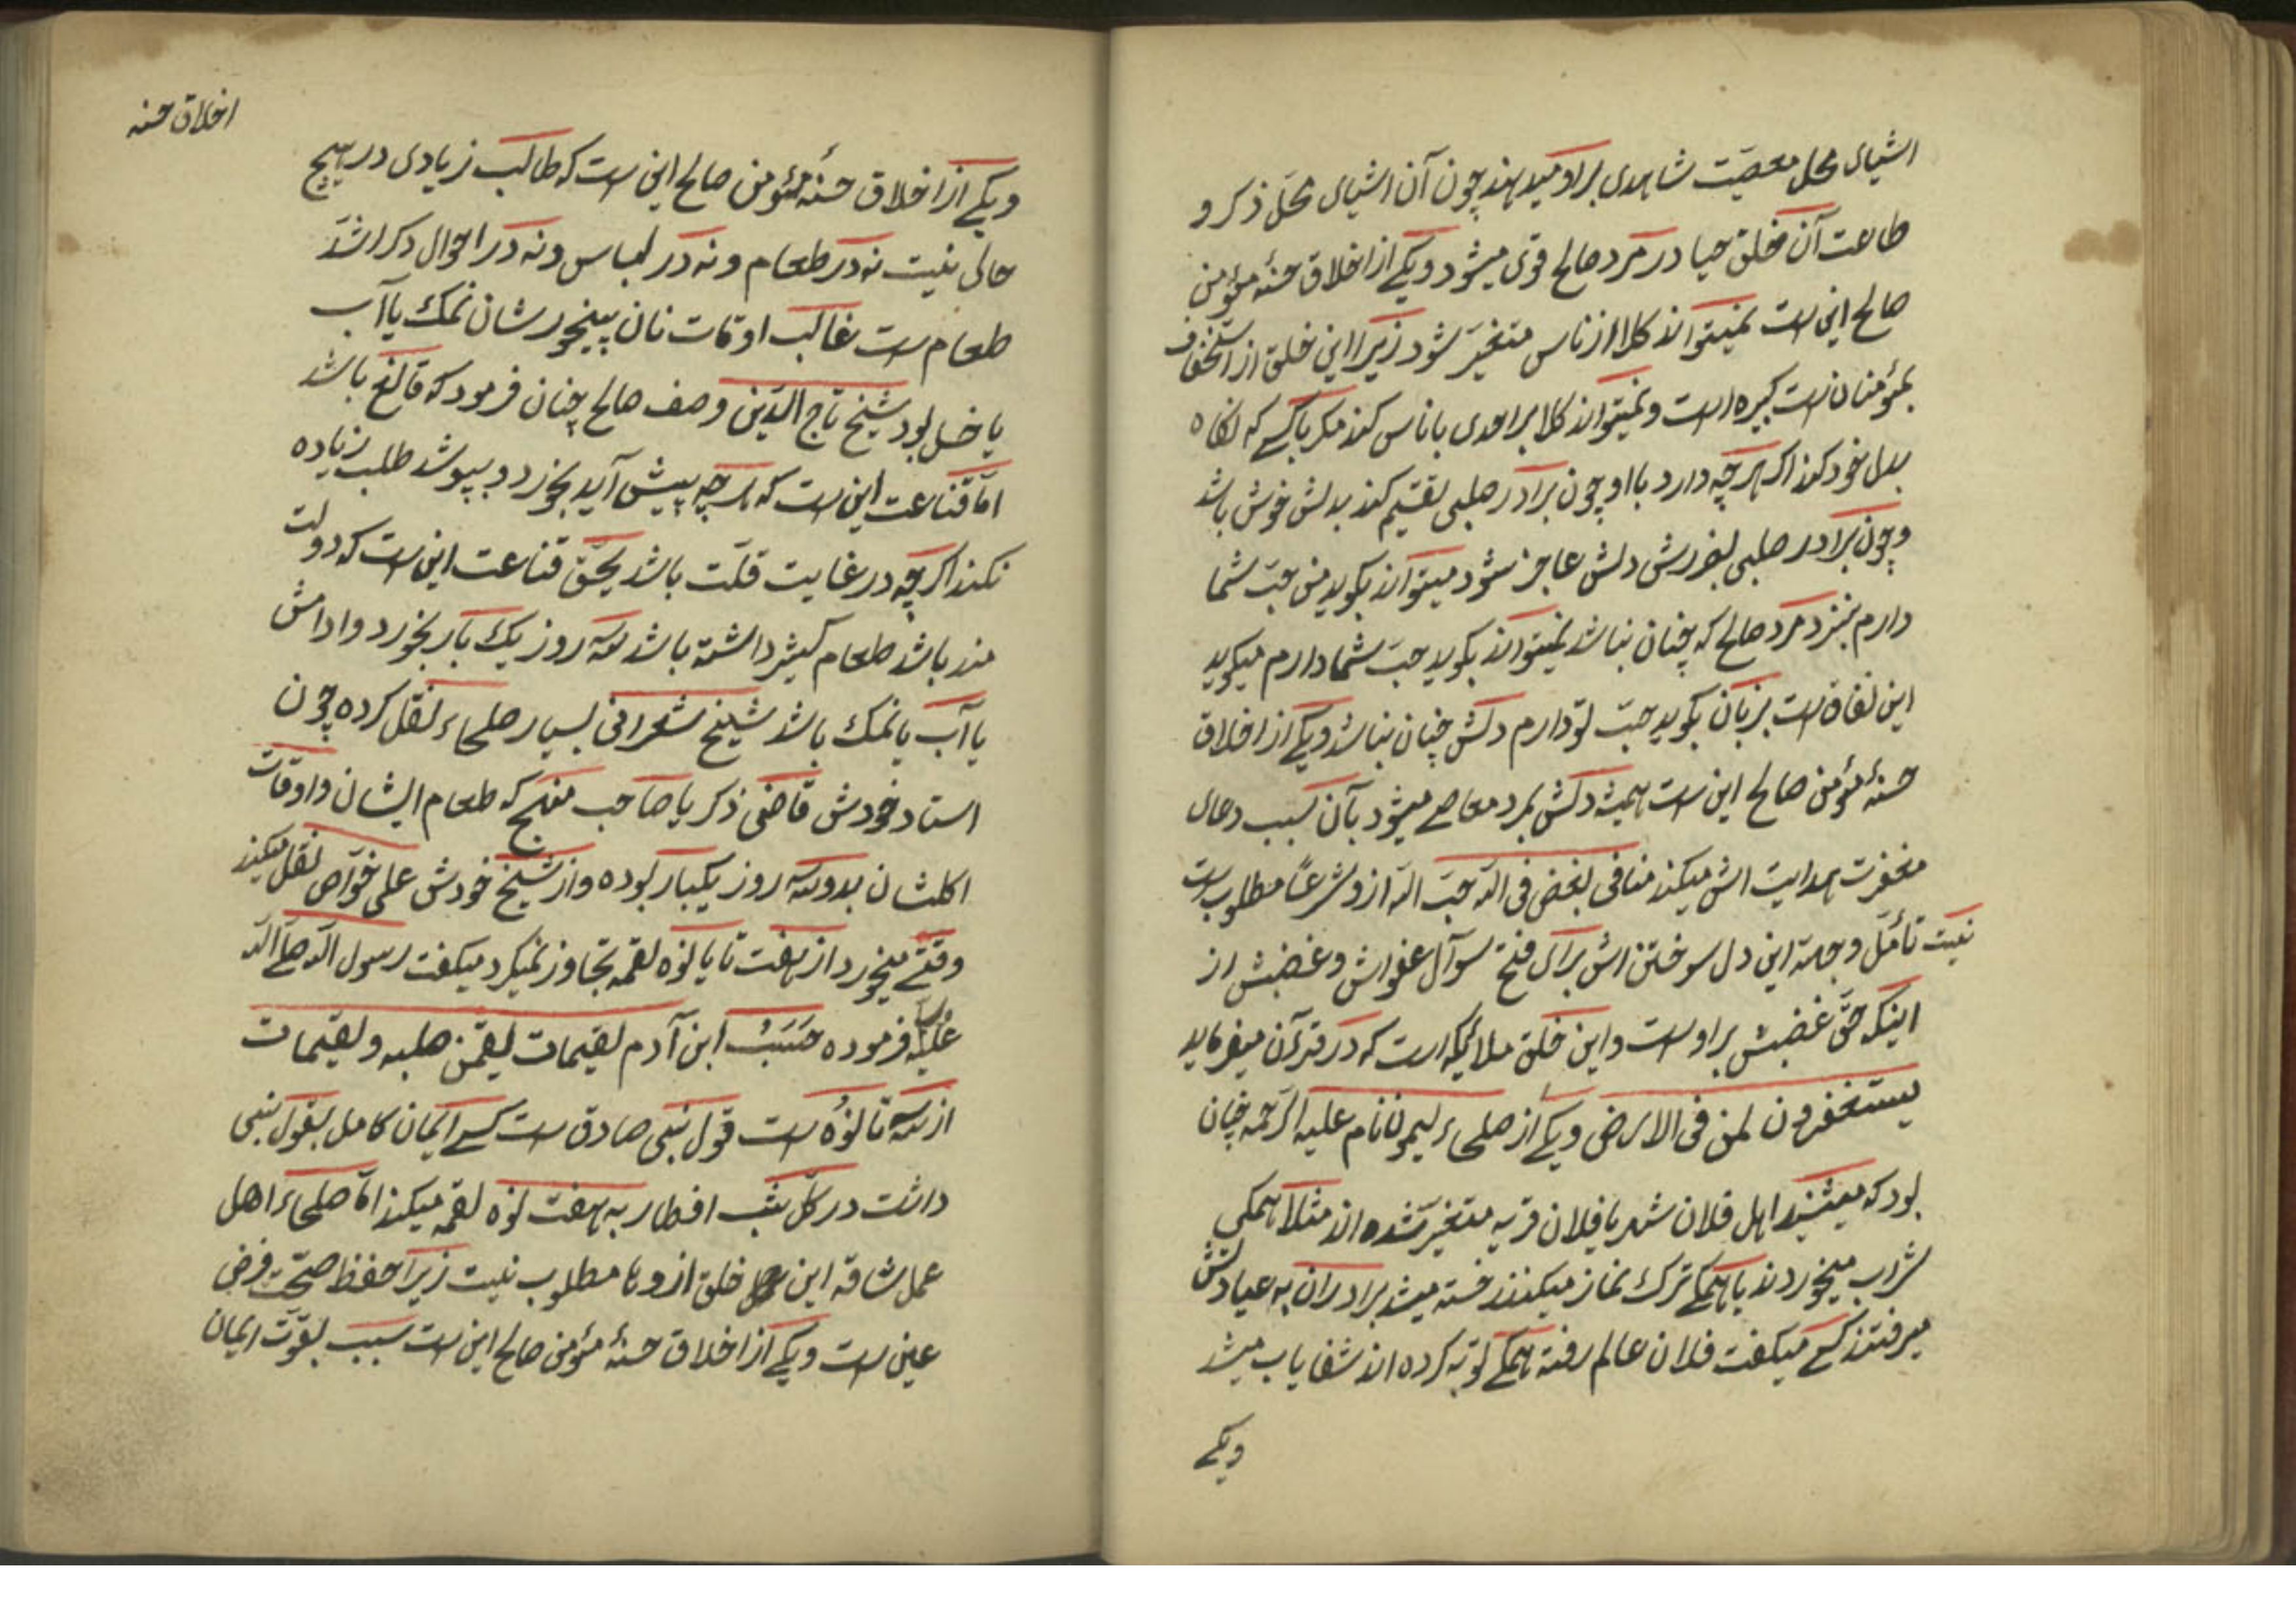 اشیای محل معصیت شاهدی براو میدهند چون آن اشیای محل ذکر و
طاعت آن خلق حیا در مرد صالح قوی میشود ویکی از اخلاق حسنهٔ مؤمن
صالح این است نمیتواند کلا از ناس متغیر شود زیرا این خلق از استخفاف
بمؤمنان است کبیره است ونمیتواند کلا برادری با ناس کند مکر باکسی که نکاه
بدل خود کند اکر هرچه دارد با او چون برادر صلبی تقسیم کند بدلش خوش باشد
وچون برادر صلبی بضررش دلش عاجز شود میتواند بکوید من حبّ شما
دارم بنزد مرد صالح که چنان نباشد نمیتواند بکوید حبّ شما دارم میکوید
این نفاق است بزبان بکوید حبّ تو دارم دلش چنان نباشد ویکی از اخلاق
حسنهٔ مؤمن صالح این است همیشه دلش بمرد معاصی میشود بآن سبب دعای
مغفرت هدایت اش میکند منافی بغض فی الله حبّ الله ازو شرعًا مطلوب است
نیست تأمّل وجهة این دل سوختن اش برای فتح سوآل عفواش وغضبش از
اینکه حقّ غضبش براو است واین خلق ملائیکه است که در قرآن میفرماید
یستغفرون لمن فی الارض ویکی از صلحاء لیمونا نام علیه الرحمه چنان
بود که میشنید اهل فلان شهر یا فلان قریه متغیّر شده اند مثلا همکی
شراب میخوردند یا همکی ترک نماز میکنند خسته میشد برادران به عیادتش
میرفتند کسی میکفت فلان عالم رفته همکی توبه کرده اند شفا یاب میشد
ویکی
اخلاق حسنه
ویکی از اخلاق حسنهٔ مؤمن صالح این است که طالب زیادی در هیچ
حالی نیست نه در طعام ونه در لباس ونه در احوال دکر اشدّ
طعام است غالب اوقات نان پنیخورشان نمک یا آب
یا خل بود شیخ تاج الدّین وصف صالح چنان فرمود که قالع باشد
امّا قناعت این است که هرچه پیش آید بخورد و بپوشد طلب زیاده
نکند اکرچه در غایت قلّت باشد بحقّ قناعت این است که دولت
مند باشد طعام کیثر داشته باشد سه روز یک بار بخورد وادامش
یا آب یا نمک باشد شیخ شعرانی بسیار صلحاء نقل کرده چون
استاد خودش قاضی ذکریا صاحب منهج که طعام ایشان واوقات
اکلشان بدوسه روز یکبار بوده واز شیخ خودش علی خوّاص نقل میکند
وقتی میخورد از هفت تا یا نوه لقمه تجاوز نمیکرد میکفت رسول الله صلی الله
علیه فرموده حَسَبُ ابن آدم لقیمات لیقمن صلبه ولقیمات
از سه تا نوه است قول نبی صادق است کسی ایمان کامل بقول نبی
داشت در کلّ شب افطار به هفت نوه لقمه میکند امّا صلحاء اهل
عمل شاقّه این خلق ازوها مطلوب نیت زیرا حفظ صحّت فرض
عین است ویکی از اخلاق حسنهٔ مؤمن صالح این است سبب بقوّت ایمان